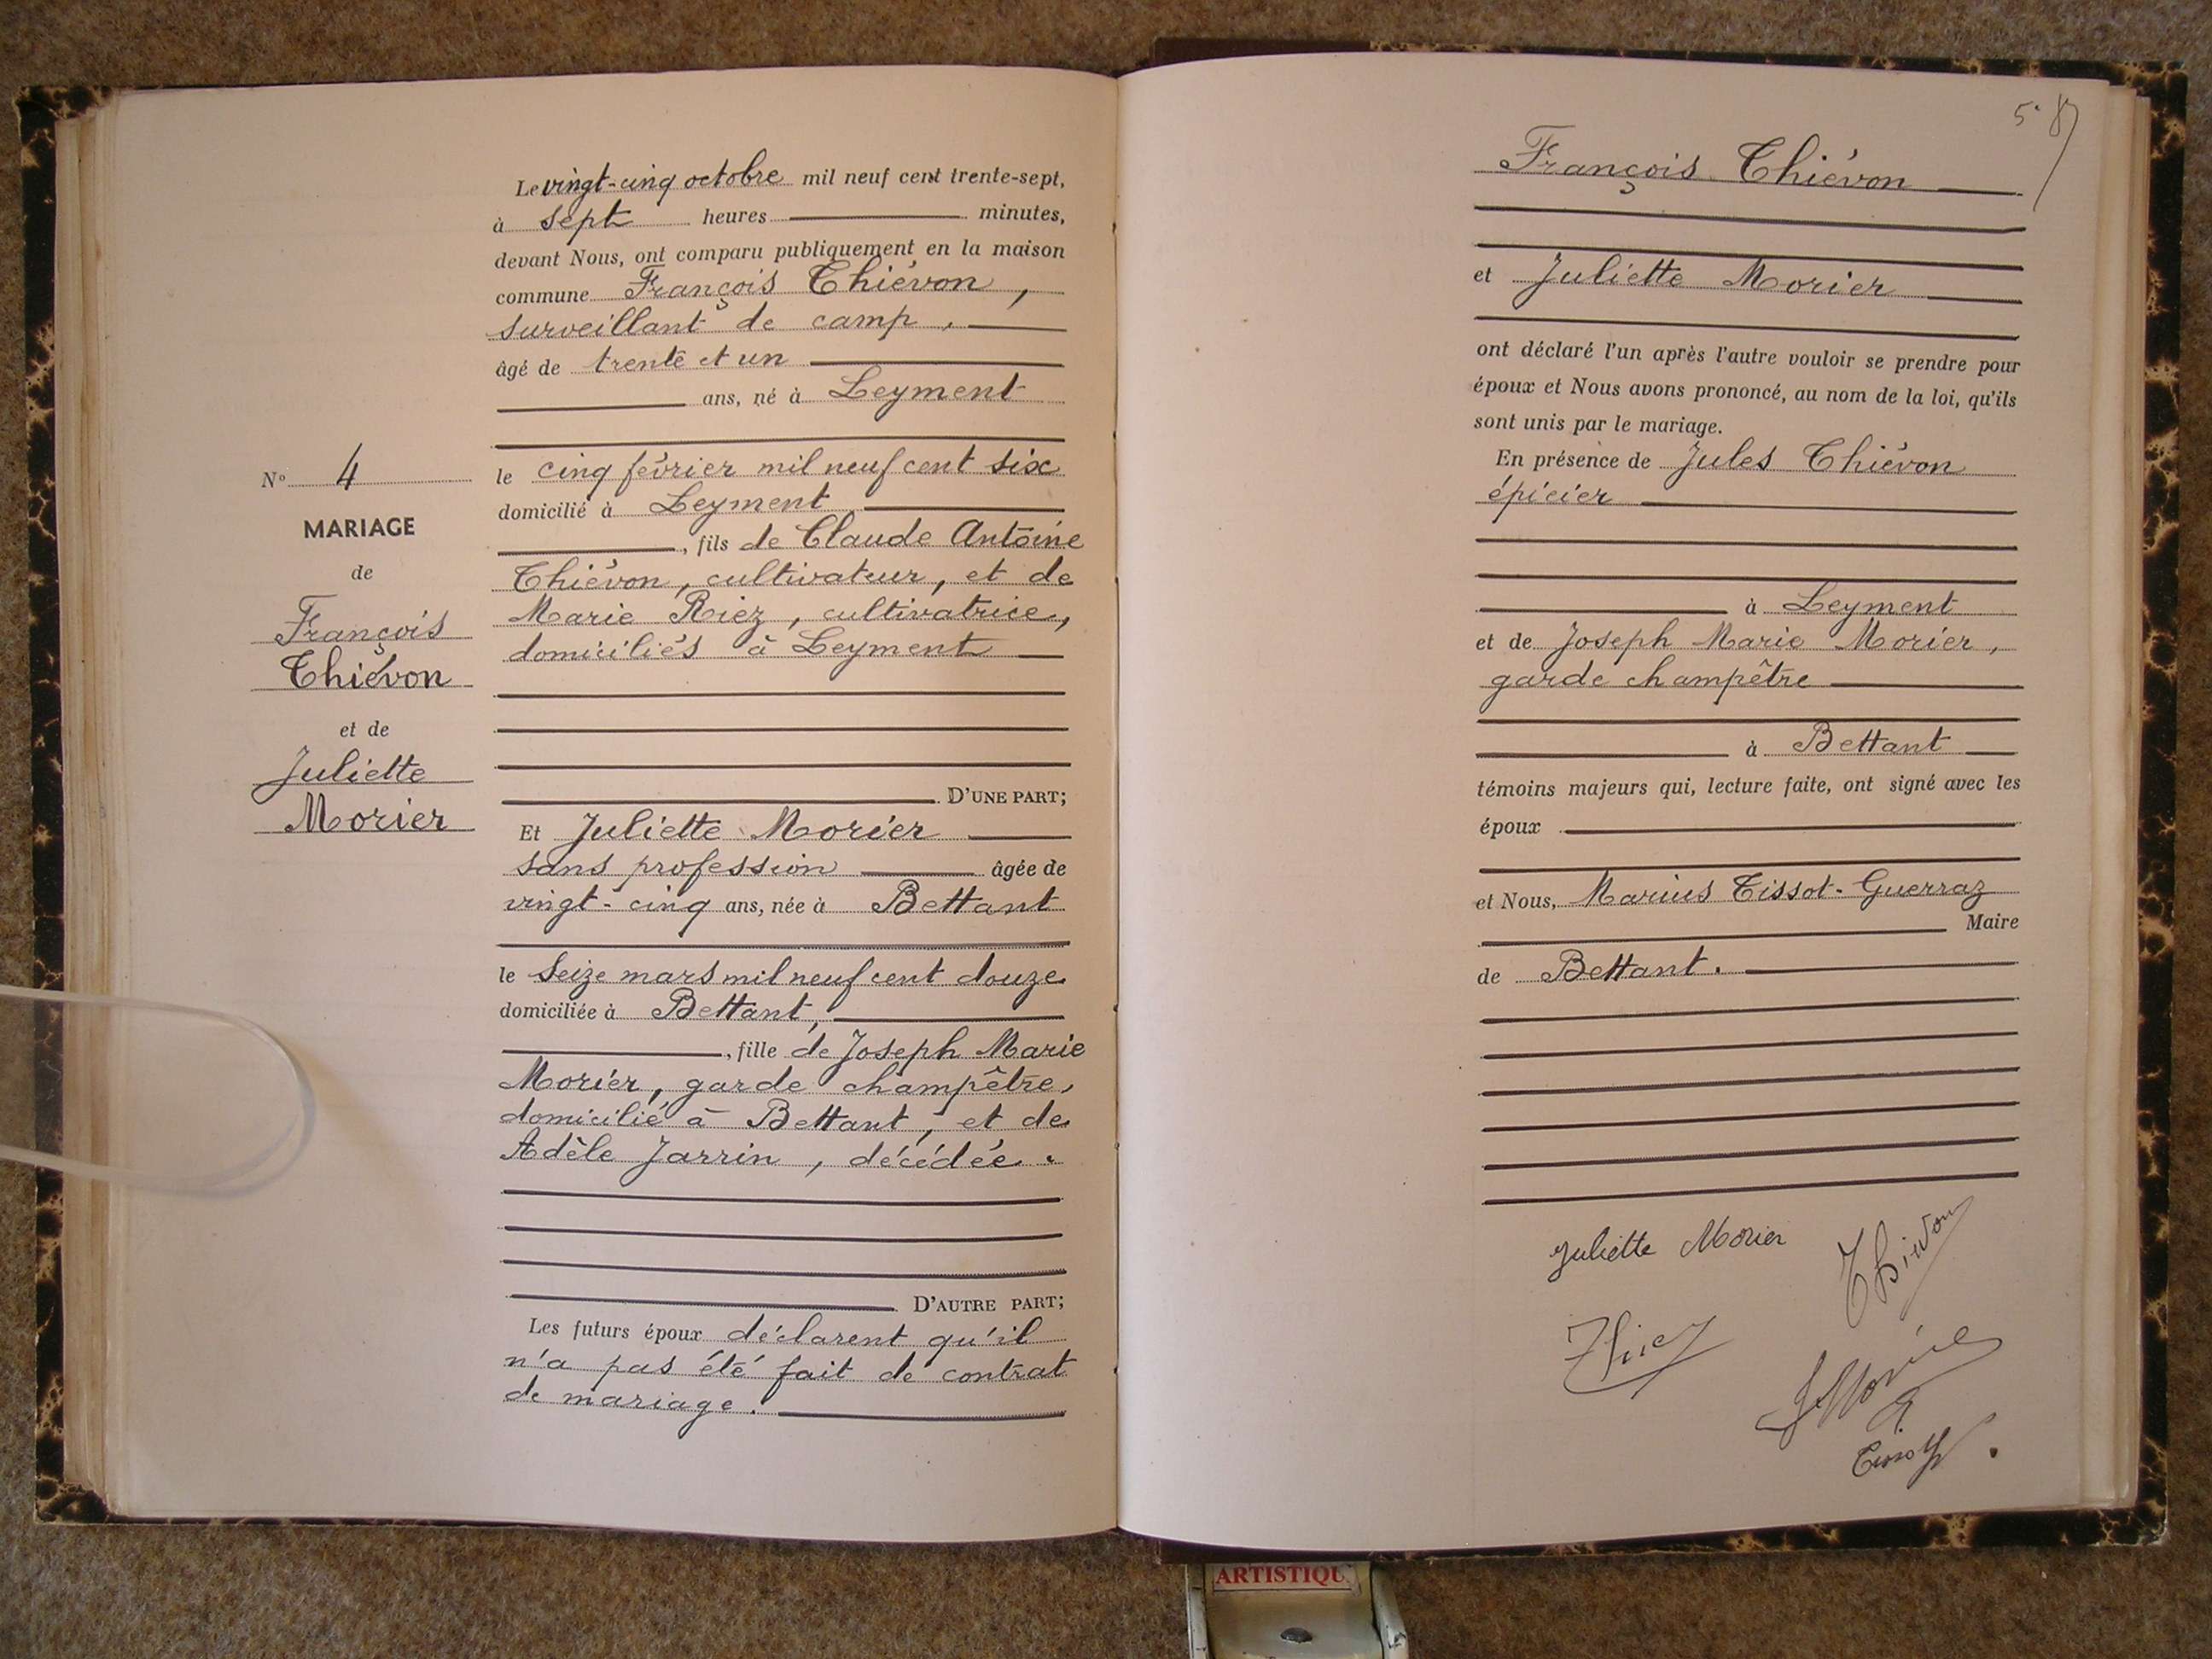 Le vingt-cinq octobre mil neuf cent trente-sept,
à sept heures minutes,
devant Nous, ont comparu publiquement en la maison
commune François Thiévon,
surveillant de camp,
âgé de trente et un
ans, né à Leyment
le cinq février mil neuf cent six
domicilié à Leyment
, fils de Claude Antoine
Thiévon, cultivateur, et de
Marie Riez, cultivatrice,
domiciliés à Leyment
D'UNE PART;
Et Juliette Morier
sans profession âgée de
vingt-cinq ans, née à Bettant
le seize mars mil neuf cent douze
domiciliée à Bettant,
, fille de Joseph Marie
Morier, garde champêtre,
domicilié à Bettant, et de
Adèle Jarrin, décédée.
D'AUTRE PART;
Les futurs époux déclarent qu'il
n'a pas été fait de contrat
de mariage.
No 4
MARIAGE
de
François
Thiévon
et de
Juliette
Morier
François Thiévon
et Juliette Morier
ont déclaré l'un après l'autre vouloir se prendre pour
époux et Nous avons prononcé, au nom de la loi, qu'ils
sont unis par le mariage.
En présence de Jules Thiévon
épicier
à Leyment
et de Joseph Marie Morier,
garde champêtre
à Bettant
témoins majeurs qui, lecture faite, ont signé avec les
époux
et Nous, Marius Tissot-Guerraz
Maire
de Bettant.
Juliette Morier
Thievon
ARTISTIQU